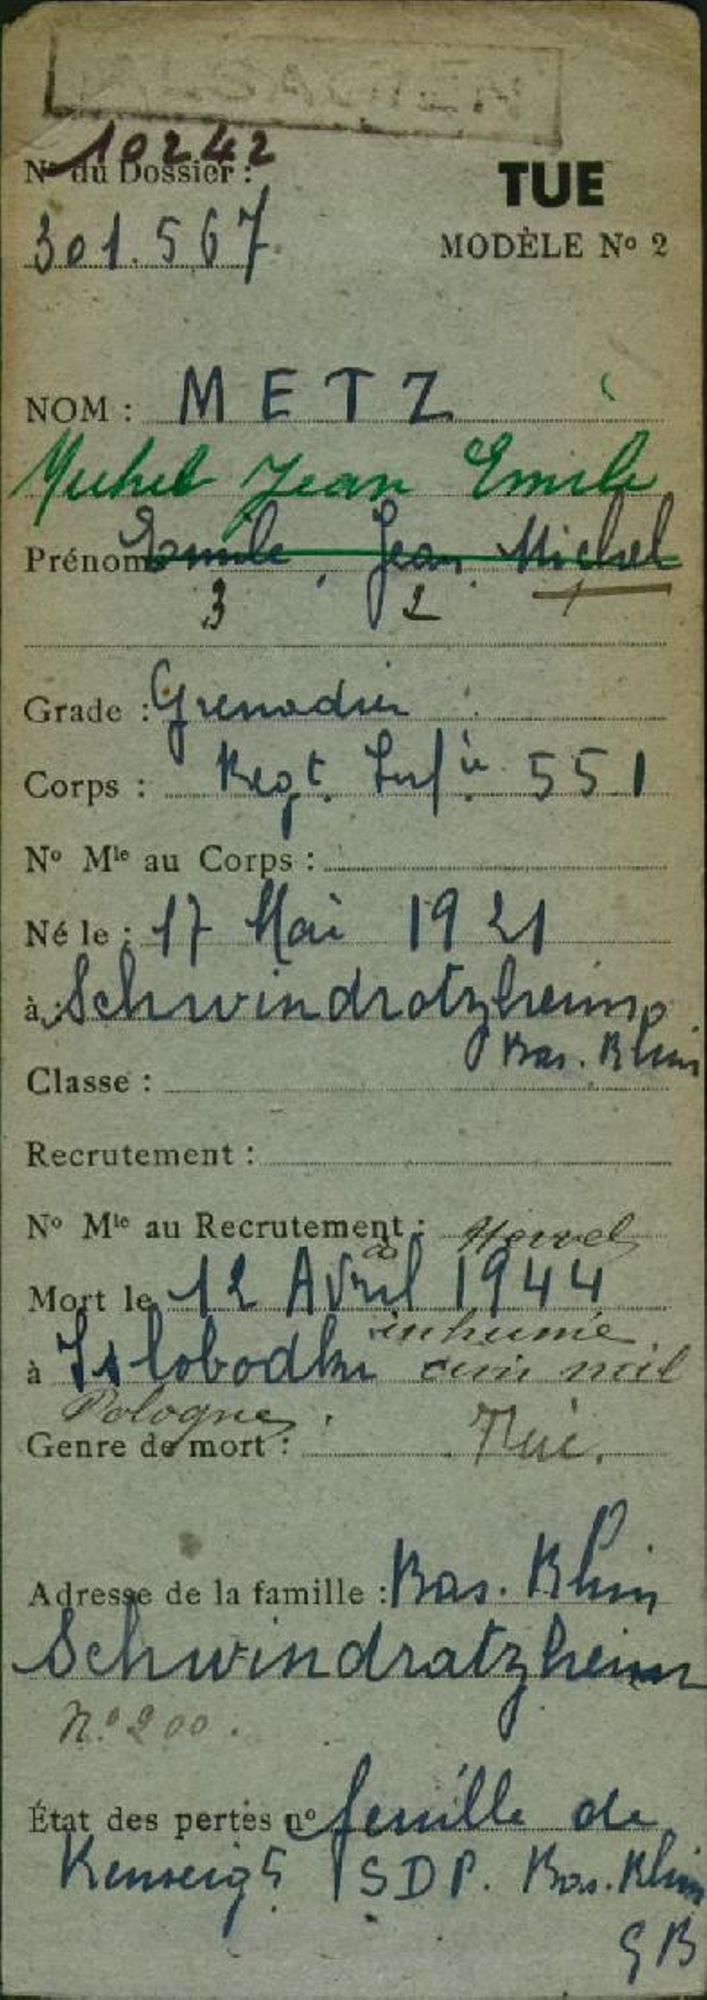 10242
N° du Dossier :
301.567
TUE
MODÈLE N° 2
NOM : METZ
Michel Jean Emile
Prénom Emile Jean Michel
3 2 1
Grade : Grenadier
Corps : Regt. Infie 551
N° Mle au Corps :
Né le : 17 Mai 1921
à Schwindratzheim
Bas. Rhin
Classe :
Recrutement :
N° Mle au Recrutement :
Mort le 12 Avril 1944
inhumé
à Islobodka cim mil
Pologne.
Genre de mort : Tué.
Adresse de la famille : Bas. Rhin
Schwindratzheim
N° 200.
État des pertes n° feuille de
Renseigts SDP. Bas. Rhin
GB